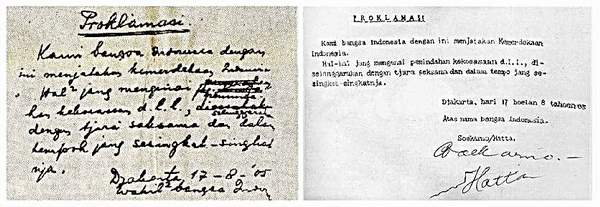 Proklamasi.
Kami bangsa Indonesia dengan
ini menjatakan kemerdekaan Indonesia.
Hal² jang mengenai
han kekoeasaan d.l.l.,
dengan tjara saksama dan dalam
tempoh jang sesingkat-singkat
nja.
Djakarta 17-8-'05
Wakil² bangsa Indon
PROKLAMASI
Kami bangsa Indonesia dengan ini menjatakan Kemerdekaan
Indonesia.
Hal-hal jang mengenai pemindahan kekoeasaan d.l.l., di-
selenggarakan dengan tjara saksama dan dalam tempo jang se-
singkat-singkatnja.
Djakarta, hari 17 boelan 8 tahoen 05
Atas nama bangsa Indonesia.
Soekarno/Hatta.
Soekarno.-
Hatta